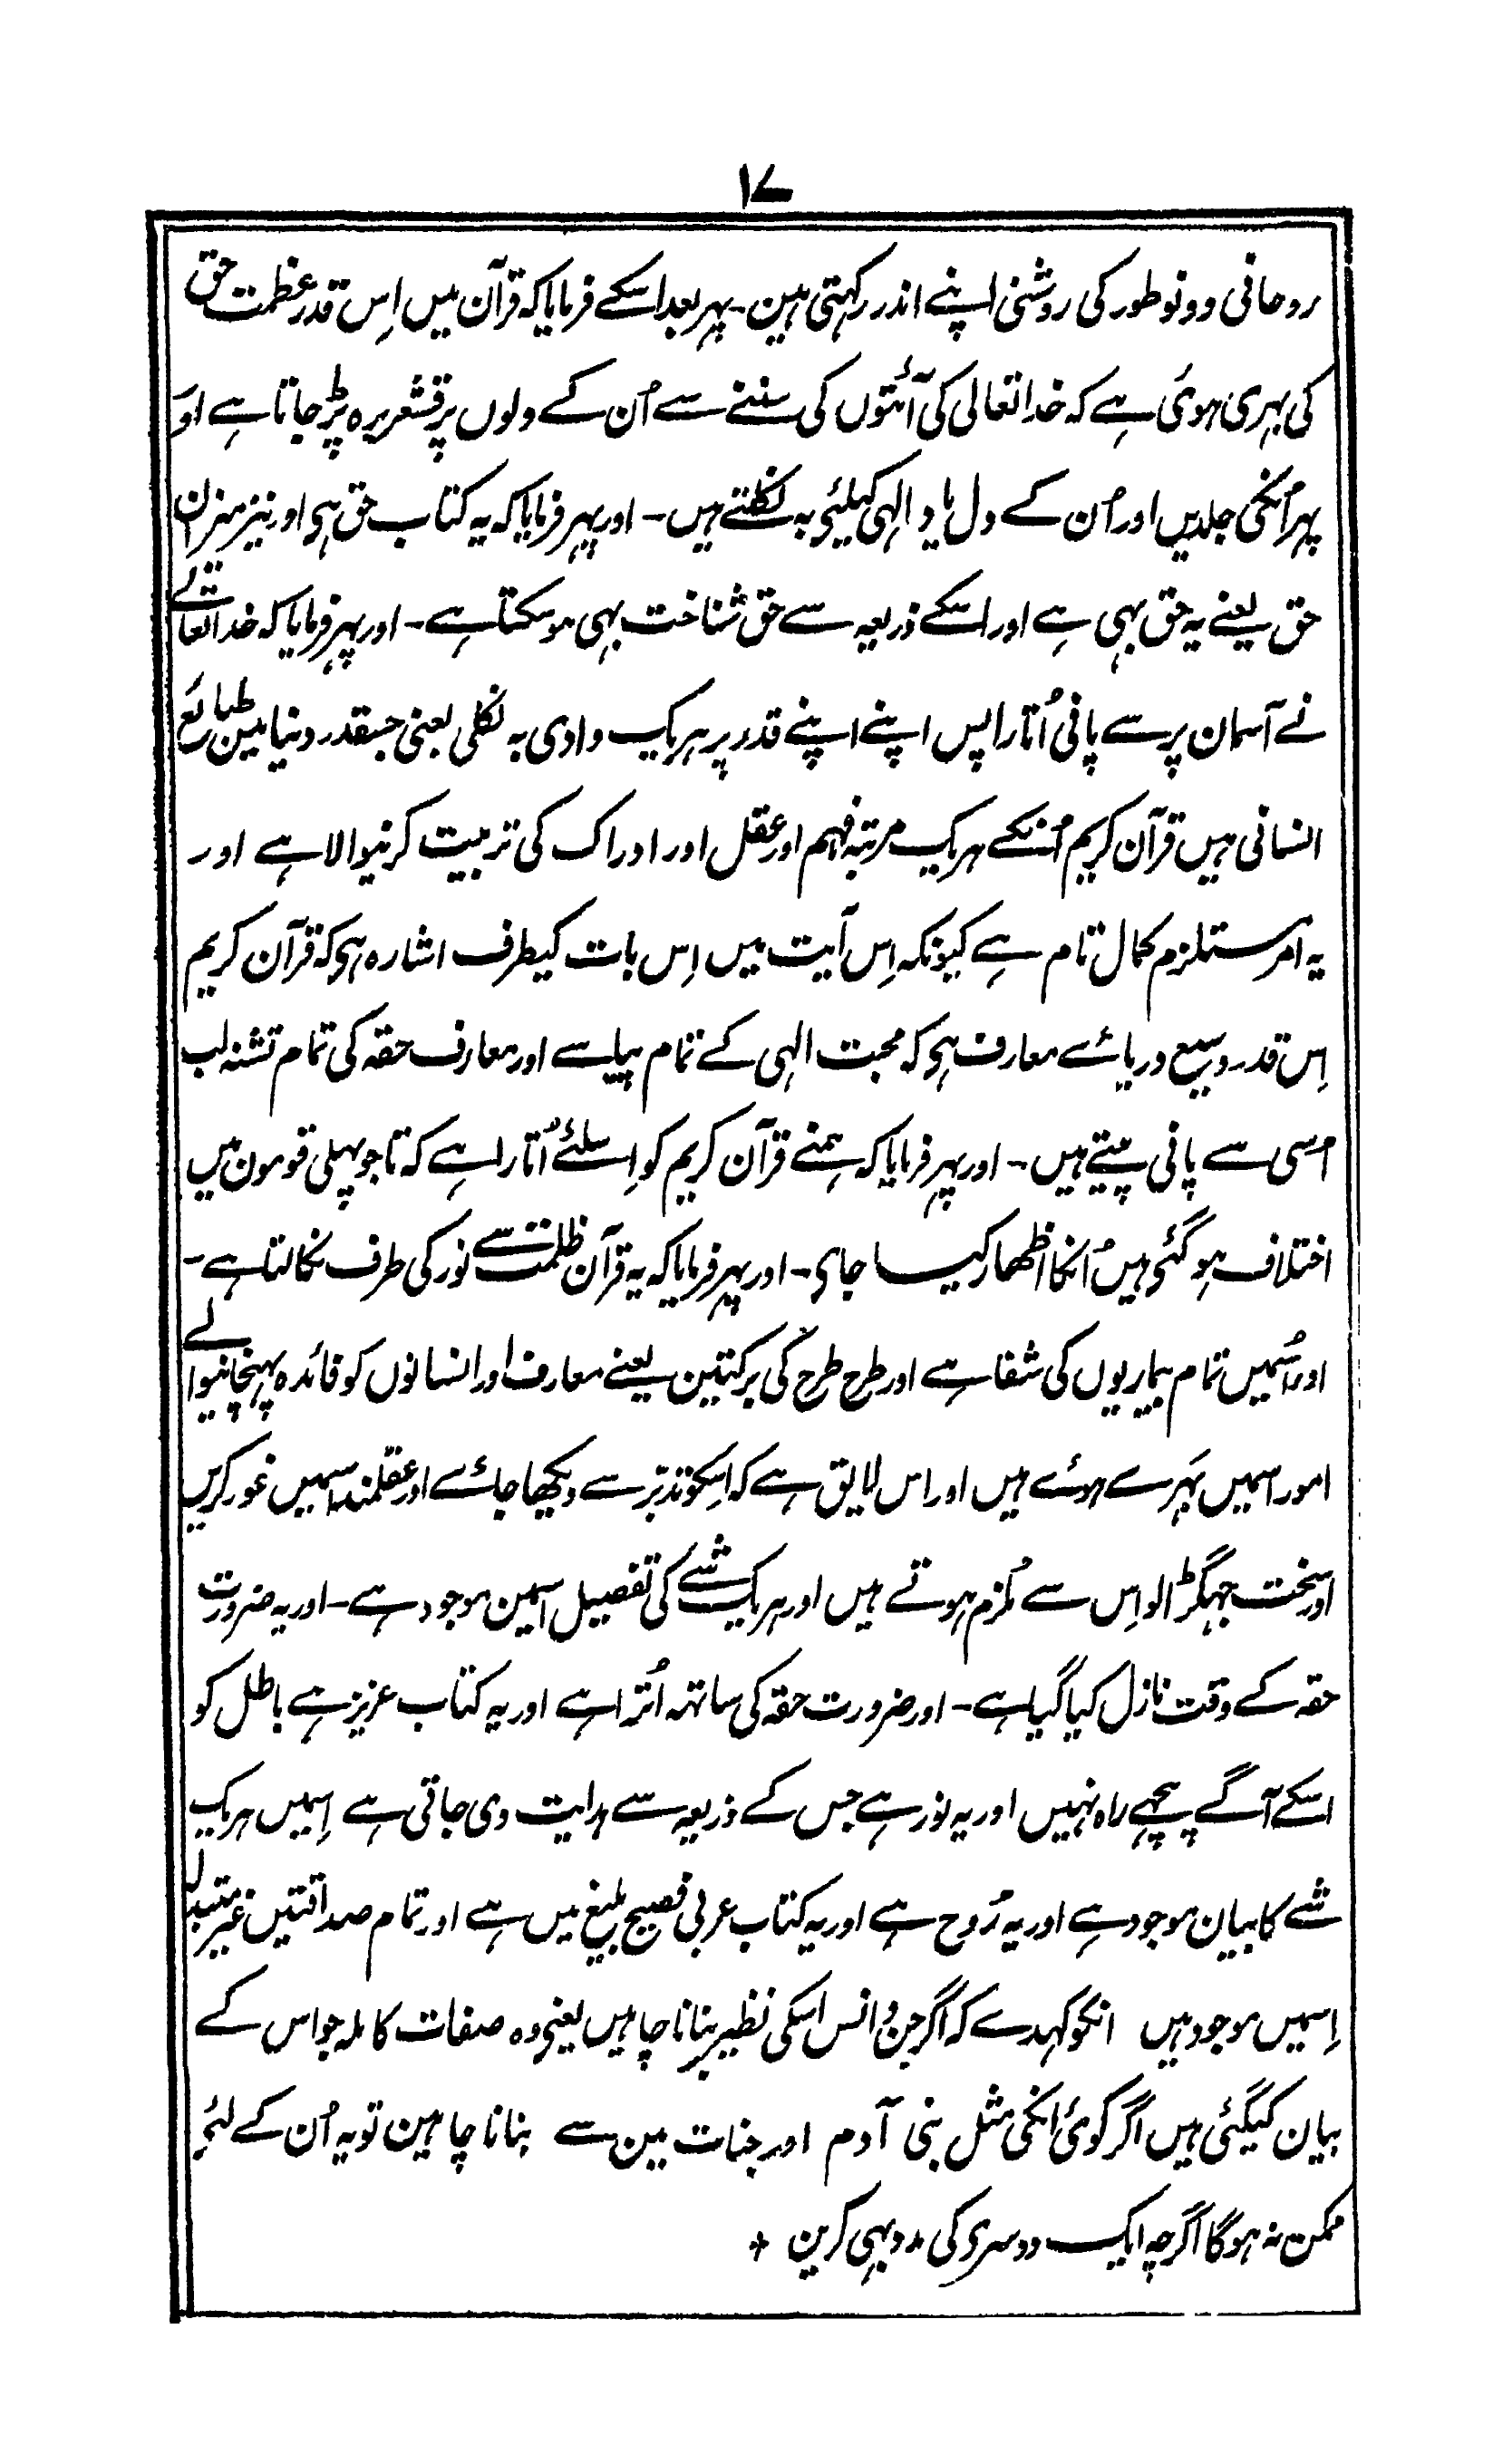 ۱۷
روحانی دونو طور کی روشنی اپنے اندر رکہتی ہین۔ پہر بعد اسکے فرمایا کہ قرآن میں اِس قدر عظمت حق
کی بہری ہوئی ہے کہ خدا تعالی کی آئتوں کی سننے سے اُن کے دلوں پر قشعریرہ پڑ جاتا ہے اور
پہر اُنکی جلدیں اور اُن کے دل یاد الہی کیلئے بہ نکلتے ہیں۔ اور پہر فرمایا کہ یہ کتاب حق ہی اور نیز میزان
حق یعنے یہ حق بہی ہے اور اسکے ذریعہ سے حق شناخت بہی ہو سکتا ہے۔ اور پہر فرمایا کہ خدا تعالےٰ
نے آسمان پر سے پانی اُتارا پس اپنے اپنے قدر پر ہر یک وادی بہ نکلی یعنی جسقدر دنیا میں طبائع
انسانی ہیں قرآن کریم اُنکے ہر یک مرتبہ فہم اور عقل اور ادراک کی تربیت کرنیوالا ہے اور
یہ امر مستلزم کمال تام ہے کیونکہ اِس آیت میں اِس بات کیطرف اشارہ ہی کہ قرآن کریم
اِس قدر وسیع دریائے معارف ہی کہ محبت الہی کے تمام پیاسے اور معارف حقہ کی تمام تشنہ لب
اُسی سے پانی پیتے ہیں۔ اور پہر فرمایا کہ ہمنے قرآن کریم کو اِسلئے اُتارا ہے کہ تا جو پہلی قومون میں
اختلاف ہو گئی ہیں اُنکا اظہار کیا جای۔ اور پہر فرمایا کہ یہ قرآن ظلمت سے نور کی طرف نکالتا ہے۔
اور اُسمیں تمام بیماریوں کی شفا ہے اور طرح طرح کی برکتین یعنے معارف اور انسانوں کو فائدہ پہنچانیوالے
امور اسمیں بہرے ہوئے ہیں اور اس لایق ہے کہ اِسکو تدبّر سے دیکھا جائے اور عقلمند اسمیں غور کریں
اور سخت جہگڑالو اِس سے مُلزم ہوتے ہیں اور ہر یک شے کی تفصیل اسمین موجود ہے۔ اور یہ ضرورت
حقہ کے وقت نازل کیا گیا ہے۔ اور ضرورت حقہ کی ساتہہ اُترا ہے اور یہ کتاب عزیز ہے باطل کو
اسکے آگے پیچہے راہ نہیں اور یہ نور ہے جس کے ذریعہ سے ہدایت دی جاتی ہے اِسمیں ہر یک
شے کا بیان موجود ہے اور یہ رُوح ہے اور یہ کتاب عربی فصیح بلیغ میں ہے اور تمام صداقتیں غیر متبدل
اِسمیں موجود ہیں انکو کہدے کہ اگر جن و انس اسکی نظیر بنانا چاہیں یعنی وہ صفات کاملہ جو اس کے
بیان کیگئی ہیں اگر کوئی انکی مثل بنی آدم اور جنات مین سے بنانا چاہین تو یہ اُن کے لئے
ممکن نہ ہوگا اگرچہ ایک دوسری کی مدد بہی کرین +